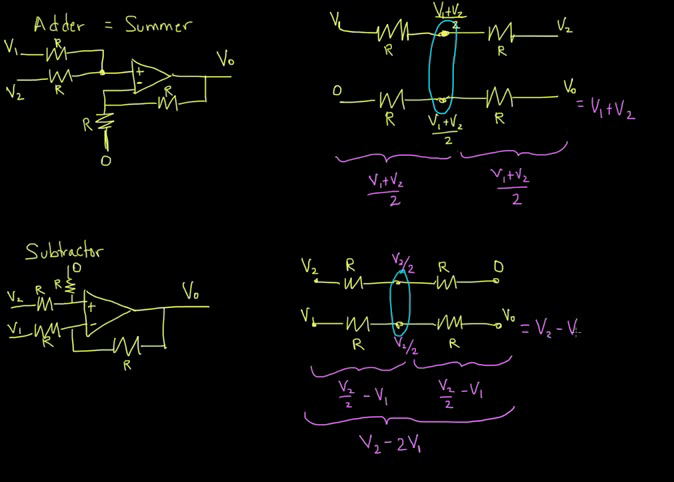 Adder = Summer
V₁
R
V₂
R
+
-
V₀
R
R
0
V₁
R
V₁+V₂/2
R
V₂
0
R
V₁+V₂/2
R
V₀ = V₁+V₂
V₁+V₂/2
V₁+V₂/2
Subtractor
0
R
V₂ R
+
V₁ R
-
V₀
R
V₂ R V₂/2 R 0
V₁ R V₂/2 R V₀ = V₂ - V
V₂/2 - V₁
V₂/2 - V₁
V₂ - 2V₁